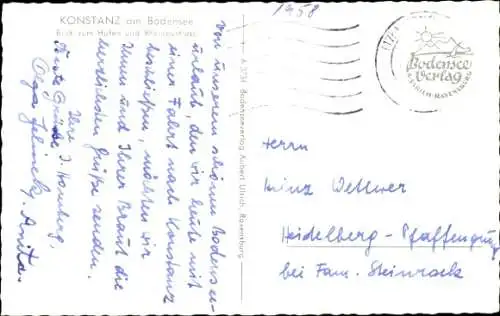 KONSTANZ am Bodensee
Blick zum Hafen und Rheinausfluss
1958
Von unserem schönen Bodensee-
urlaub, den wir heute mit
einer Fahrt nach Konstanz
beschließen, möchten wir
Ihnen und Ihrer Braut die
herzlichsten Grüße senden.
Ihre J. Homberg,
Gute Grüße
Olga Jelinek, Anita.
A 358 Bodenseeverlag Aubert Ulrich, Ravensburg
Bodensee
Verlag
A. ULRICH · RAVENSBURG
Herrn
Heinz Wettwer
Heidelberg - Pfaffengrund
bei Fam. Steinrock